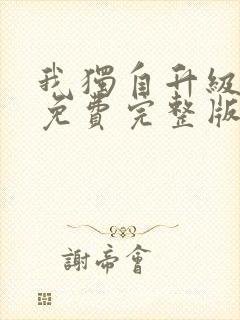 我獨自升級
免費完整版
謝帝會